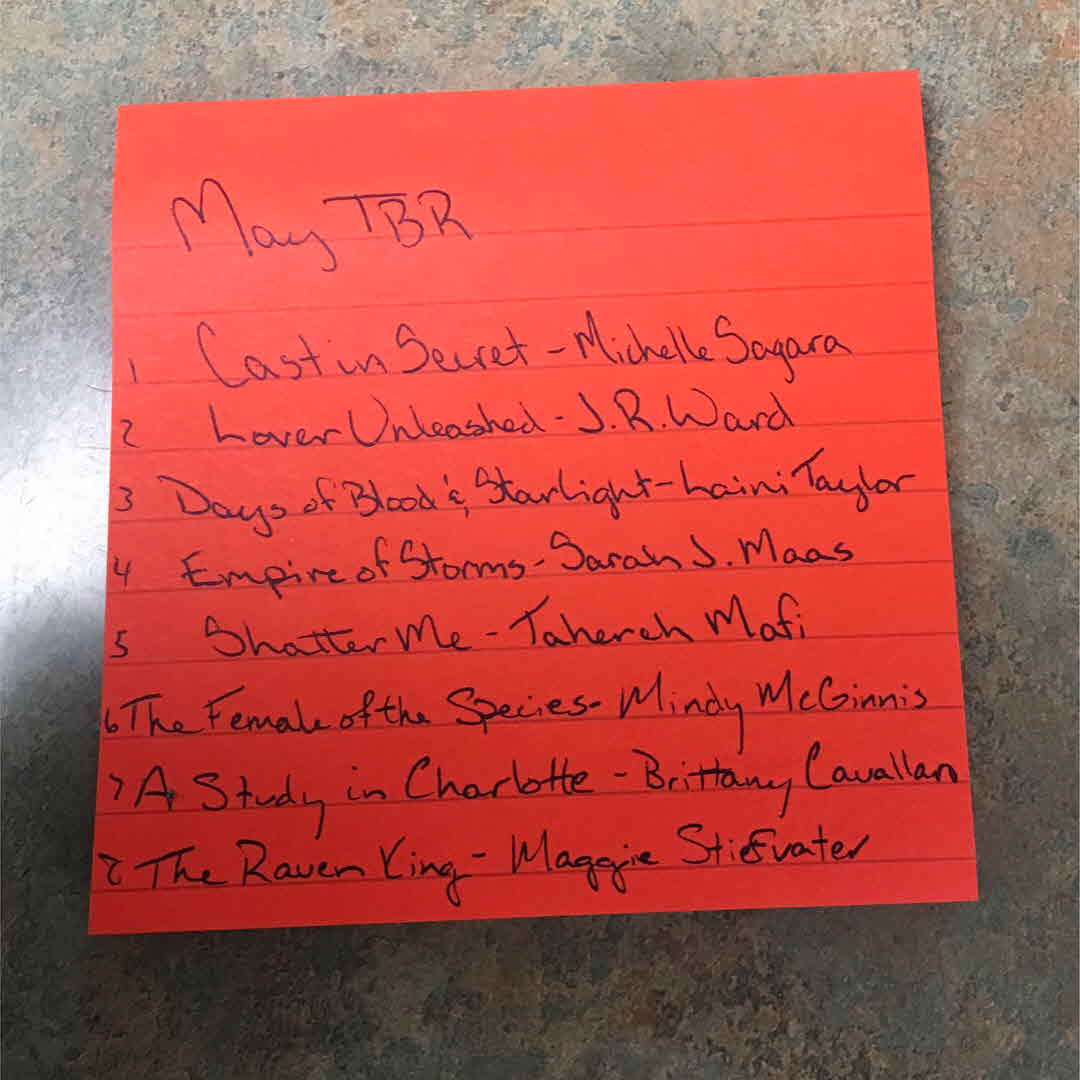 May TBR
1 Cast in Secret - Michelle Sagara
2 Lover Unleashed - J.R. Ward
3 Days of Blood & Starlight - Laini Taylor
4 Empire of Storms - Sarah J. Maas
5 Shatter Me - Tahereh Mafi
6 The Female of the Species - Mindy McGinnis
7 A Study in Charlotte - Brittany Cavallaro
8 The Raven King - Maggie Stiefvater